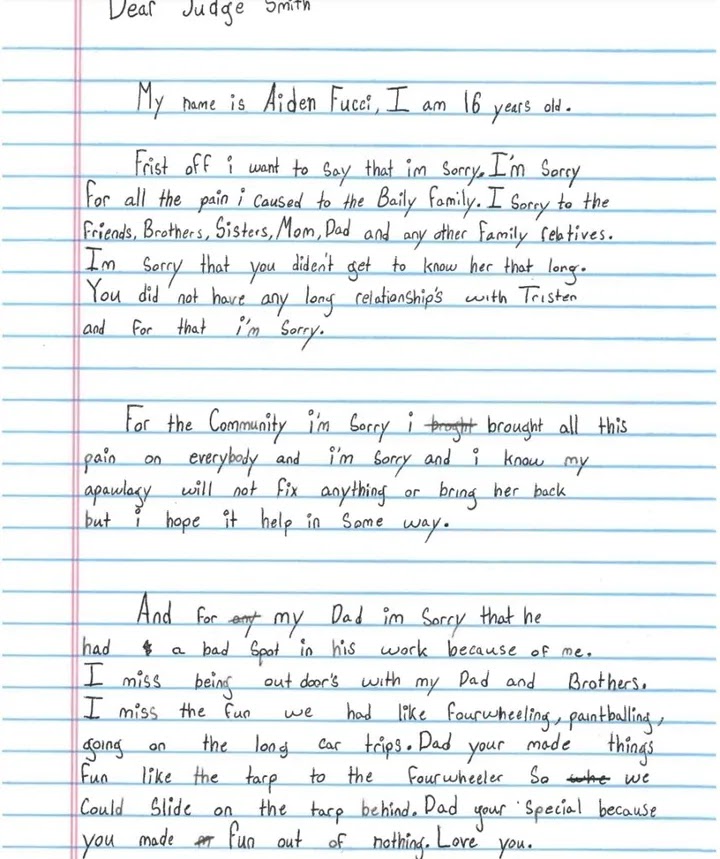 Dear Judge Smith
My name is Aiden Fucci, I am 16 years old.
Frist off i want to say that im sorry. I'm sorry
for all the pain i caused to the Baily family. I sorry to the
friends, Brothers, Sisters, Mom, Dad and any other family relatives.
Im sorry that you diden't get to know her that long.
You did not have any long relationship's with Tristen
and for that i'm sorry.
For the Community i'm sorry i broght brought all this
pain on everybody and i'm sorry and i know my
apawlagy will not fix anything or bring her back
but i hope it help in some way.
And for any my Dad im sorry that he
had a bad spot in his work because of me.
I miss being out door's with my Dad and Brothers.
I miss the fun we had like fourwheeling, paintballing,
going on the long car trips. Dad your made things
fun like the tarp to the fourwheeler so whe we
could slide on the tarp behind. Dad your special because
you made fun out of nothing. Love you.